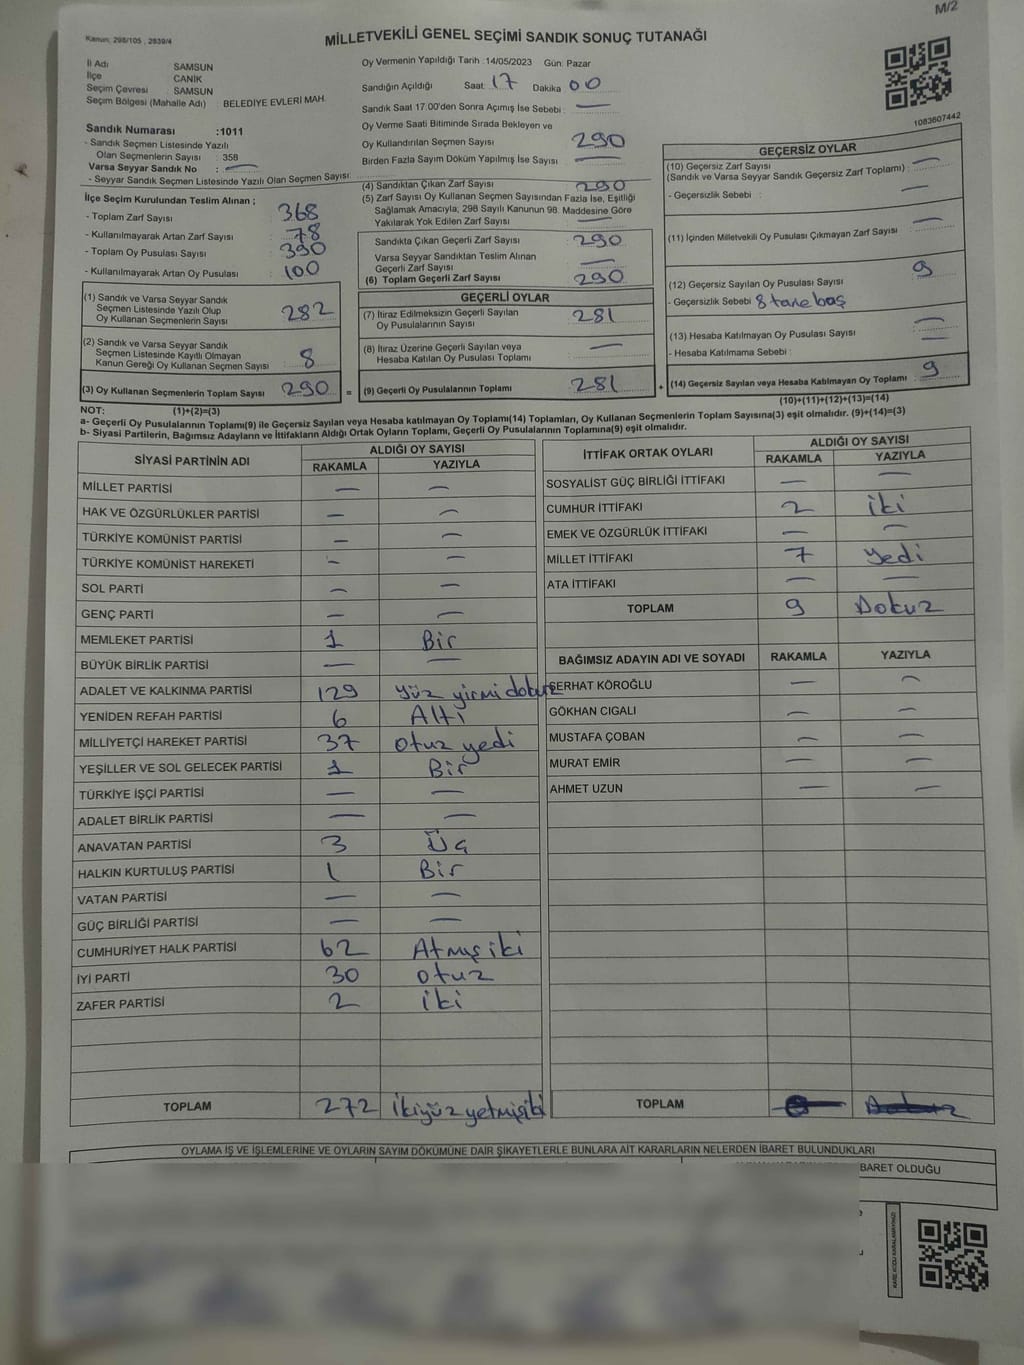 M/2
Kanun; 298/105 , 2839/4
MİLLETVEKİLİ GENEL SEÇİMİ SANDIK SONUÇ TUTANAĞI
İl Adı SAMSUN
İlçe CANİK
Seçim Çevresi : SAMSUN
Seçim Bölgesi (Mahalle Adı) : BELEDİYE EVLERİ MAH.
Sandık Numarası :1011
- Sandık Seçmen Listesinde Yazılı
Olan Seçmenlerin Sayısı : 358
Varsa Seyyar Sandık No : —
- Seyyar Sandık Seçmen Listesinde Yazılı Olan Seçmen Sayısı
Oy Vermenin Yapıldığı Tarih :14/05/2023 Gün: Pazar
Sandığın Açıldığı Saat: 17 Dakika 00
Sandık Saat 17:00'den Sonra Açımış İse Sebebi : —
Oy Verme Saati Bitiminde Sırada Bekleyen ve
Oy Kullandırılan Seçmen Sayısı 290
Birden Fazla Sayım Döküm Yapılmış İse Sayısı —
1083607442
İlçe Seçim Kurulundan Teslim Alınan ;
- Toplam Zarf Sayısı 368
- Kullanılmayarak Artan Zarf Sayısı 78
- Toplam Oy Pusulası Sayısı 390
- Kullanılmayarak Artan Oy Pusulası 100
(1) Sandık ve Varsa Seyyar Sandık
Seçmen Listesinde Yazılı Olup
Oy Kullanan Seçmenlerin Sayısı 282
(2) Sandık ve Varsa Seyyar Sandık
Seçmen Listesinde Kayıtlı Olmayan
Kanun Gereği Oy Kullanan Seçmen Sayısı 8
(3) Oy Kullanan Seçmenlerin Toplam Sayısı 290 =
(4) Sandıktan Çıkan Zarf Sayısı 290
(5) Zarf Sayısı Oy Kullanan Seçmen Sayısından Fazla İse, Eşitliği
Sağlamak Amacıyla; 298 Sayılı Kanunun 98. Maddesine Göre
Yakılarak Yok Edilen Zarf Sayısı —
Sandıkta Çıkan Geçerli Zarf Sayısı 290
Varsa Seyyar Sandıktan Teslim Alınan
Geçerli Zarf Sayısı —
(6) Toplam Geçerli Zarf Sayısı 290
GEÇERLİ OYLAR
(7) İtiraz Edilmeksizin Geçerli Sayılan
Oy Pusulalarının Sayısı 281
(8) İtiraz Üzerine Geçerli Sayılan veya
Hesaba Katılan Oy Pusulası Toplamı —
(9) Geçerli Oy Pusulalarının Toplamı 281 +
GEÇERSİZ OYLAR
(10) Geçersiz Zarf Sayısı
(Sandık ve Varsa Seyyar Sandık Geçersiz Zarf Toplamı) : —
- Geçersizlik Sebebi : —
(11) İçinden Milletvekili Oy Pusulası Çıkmayan Zarf Sayısı —
(12) Geçersiz Sayılan Oy Pusulası Sayısı 9
- Geçersizlik Sebebi 8 tane baş
(13) Hesaba Katılmayan Oy Pusulası Sayısı —
- Hesaba Katılmama Sebebi : —
(14) Geçersiz Sayılan veya Hesaba Katılmayan Oy Toplamı : 9
NOT: (1)+(2)=(3)
(10)+(11)+(12)+(13)=(14)
a- Geçerli Oy Pusulalarının Toplamı(9) ile Geçersiz Sayılan veya Hesaba katılmayan Oy Toplamı(14) Toplamları, Oy Kullanan Seçmenlerin Toplam Sayısına(3) eşit olmalıdır. (9)+(14)=(3)
b- Siyasi Partilerin, Bağımsız Adayların ve İttifakların Aldığı Ortak Oyların Toplamı, Geçerli Oy Pusulalarının Toplamına(9) eşit olmalıdır.
SİYASİ PARTİNİN ADI ALDIĞI OY SAYISI
RAKAMLA YAZIYLA
MİLLET PARTİSİ — —
HAK VE ÖZGÜRLÜKLER PARTİSİ — —
TÜRKİYE KOMÜNİST PARTİSİ — —
TÜRKİYE KOMÜNİST HAREKETİ — —
SOL PARTİ — —
GENÇ PARTİ — —
MEMLEKET PARTİSİ 1 Bir
BÜYÜK BİRLİK PARTİSİ — —
ADALET VE KALKINMA PARTİSİ 129 yüz yirmi dokuz
YENİDEN REFAH PARTİSİ 6 Altı
MİLLİYETÇİ HAREKET PARTİSİ 37 otuz yedi
YEŞİLLER VE SOL GELECEK PARTİSİ 1 Bir
TÜRKİYE İŞÇİ PARTİSİ — —
ADALET BİRLİK PARTİSİ — —
ANAVATAN PARTİSİ 3 Üç
HALKIN KURTULUŞ PARTİSİ 1 Bir
VATAN PARTİSİ — —
GÜÇ BİRLİĞİ PARTİSİ — —
CUMHURİYET HALK PARTİSİ 62 Atmış iki
İYİ PARTİ 30 otuz
ZAFER PARTİSİ 2 iki
TOPLAM 272 ikiyüz yetmişiki
İTTİFAK ORTAK OYLARI ALDIĞI OY SAYISI
RAKAMLA YAZIYLA
SOSYALİST GÜÇ BİRLİĞİ İTTİFAKI — —
CUMHUR İTTİFAKI 2 iki
EMEK VE ÖZGÜRLÜK İTTİFAKI — —
MİLLET İTTİFAKI 7 yedi
ATA İTTİFAKI — —
TOPLAM 9 Dokuz
BAĞIMSIZ ADAYIN ADI VE SOYADI RAKAMLA YAZIYLA
SERHAT KÖROĞLU — —
GÖKHAN CIGALI — —
MUSTAFA ÇOBAN — —
MURAT EMİR — —
AHMET UZUN — —
TOPLAM
OYLAMA İŞ VE İŞLEMLERİNE VE OYLARIN SAYIM DÖKÜMÜNE DAİR ŞİKAYETLERLE BUNLARA AİT KARARLARIN NELERDEN İBARET BULUNDUKLARI
BARET OLDUĞU